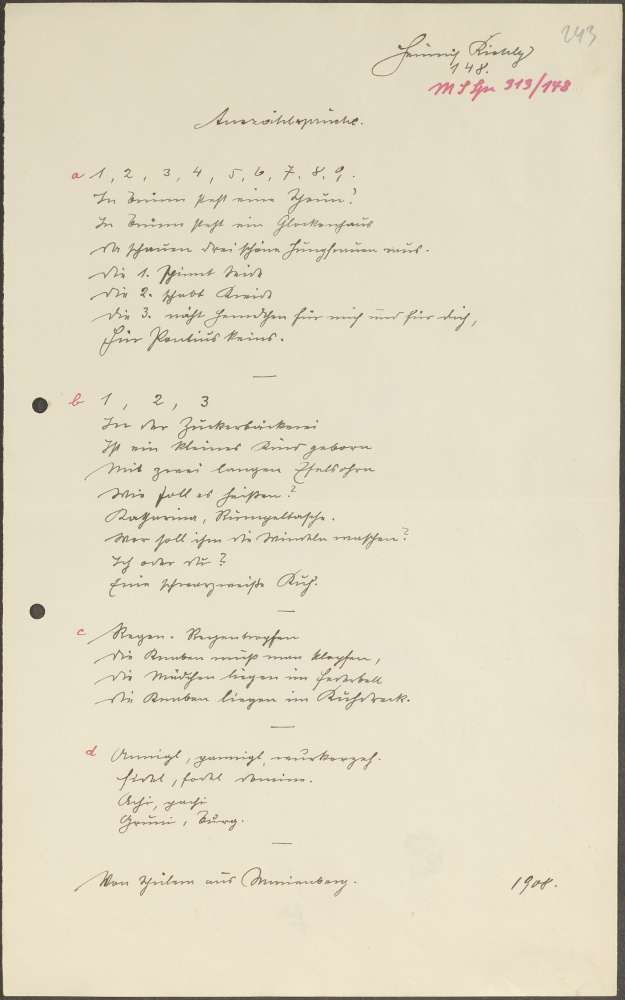 243
Heinrich
148.
MS Gr 313/148
Auszählsprüche.
a 1, 2, 3, 4, 5, 6, 7. 8. 9.
In Brünn steht eine Scheun?
In Brünn steht ein Glockenhaus
da schauen drei schöne Jungfrauen aus.
Die 1. spinnt Seide
Die 2. schabt Kreide
Die 3. näht Hemdchen für mich und für dich,
Für Pontius keins.
b 1, 2, 3
In der Zuckerbäckerei
Ist ein kleines Kind geborn
Mit zwei langen Eselsohrn
Wie soll es heißen?
Katharina, Rumpeltasche.
Wer soll ihm die Windeln waschen?
Ich oder du?
Eine schwarzweiße Kuh.
c Regen. Regentropfen
Die Knaben muß man klopfen,
Die Mädchen liegen im Federbett
Die Knaben liegen im Kuhdreck.
d
fidel, fodel domine.
Von Schülern aus
1908.